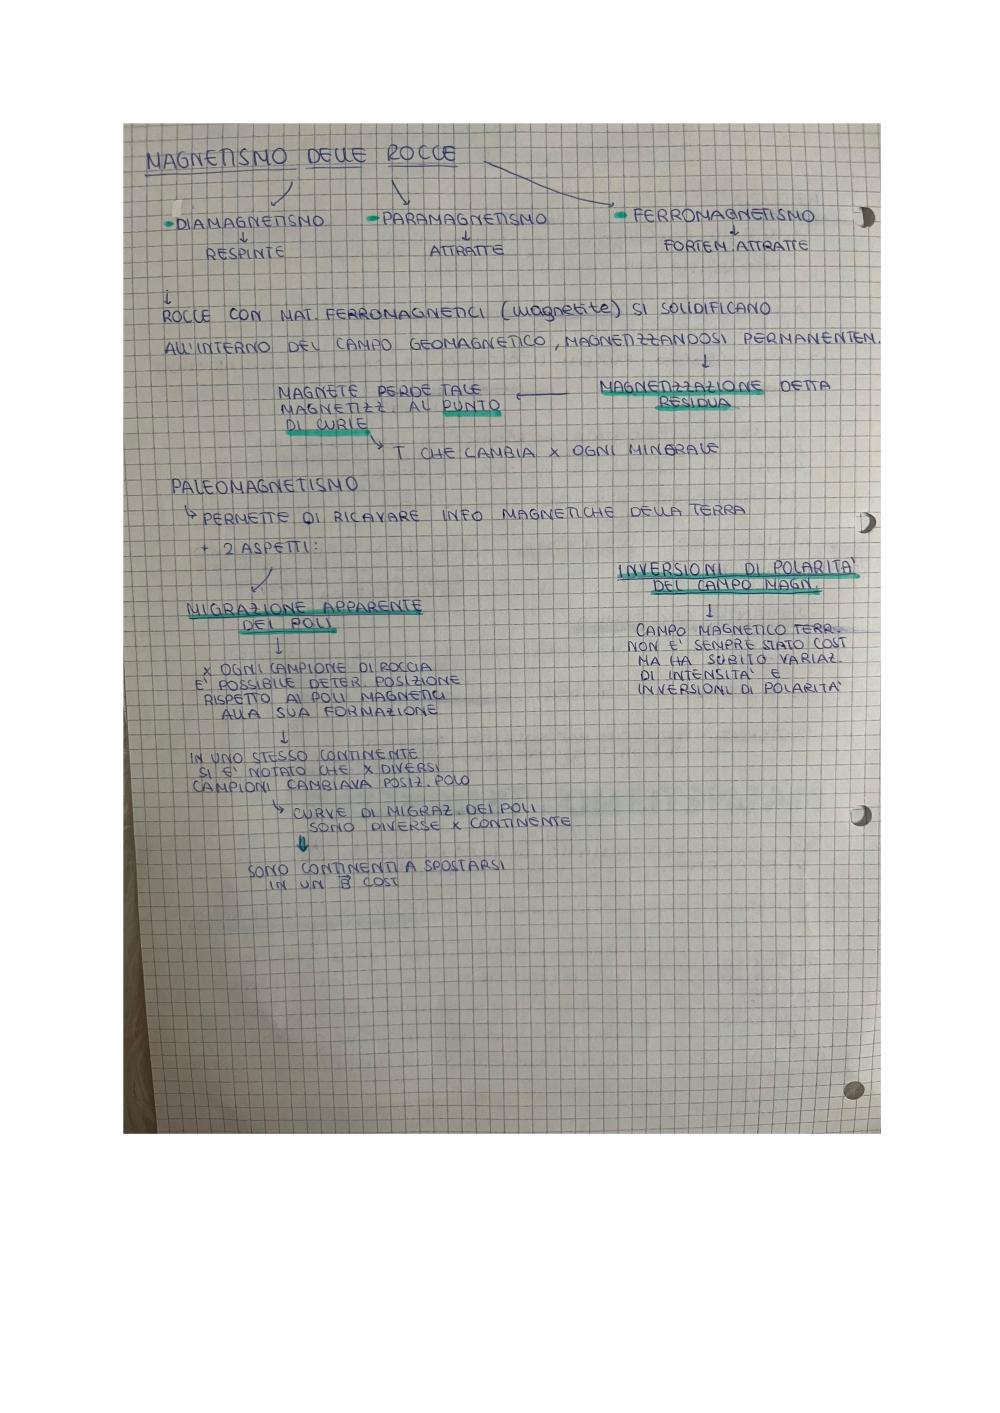 MAGNETISMO DELLE ROCCE
DIAMAGNETISMO
PARAMAGNETISMO
FERROMAGNETISMO
RESPINTE
ATTRATTE
FORTEM. ATTRATTE
ROCCE CON MAT. FERROMAGNETICI (magnetite) SI SOLIDIFICANO
ALL'INTERNO DEL CAMPO GEOMAGNETICO, MAGNETIZZANDOSI PERMANENTEM.
MAGNETIZZAZIONE DETTA
RESIDUA
MAGNETE PERDE TALE
MAGNETIZZ. AL PUNTO
DI CURIE
T CHE CAMBIA x OGNI MINERALE
PALEOMAGNETISMO
PERMETTE DI RICAVARE INFO MAGNETICHE DELLA TERRA
+ 2 ASPETTI:
MIGRAZIONE APPARENTE
DEI POLI
x OGNI CAMPIONE DI ROCCIA
E' POSSIBILE DETER. POSIZIONE
RISPETTO AI POLI MAGNETICI
ALLA SUA FORMAZIONE
IN UNO STESSO CONTINENTE
SI E' NOTATO CHE x DIVERSI
CAMPIONI CAMBIAVA POSIZ. POLO
CURVE DI MIGRAZ. DEI POLI
SONO DIVERSE x CONTINENTE
SONO CONTINENTI A SPOSTARSI
IN UN B COST
INVERSIONI DI POLARITA'
DEL CAMPO MAGN.
CAMPO MAGNETICO TERR.
NON E' SEMPRE STATO COST
MA HA SUBITO VARIAZ.
DI INTENSITA' E
INVERSIONI DI POLARITA'